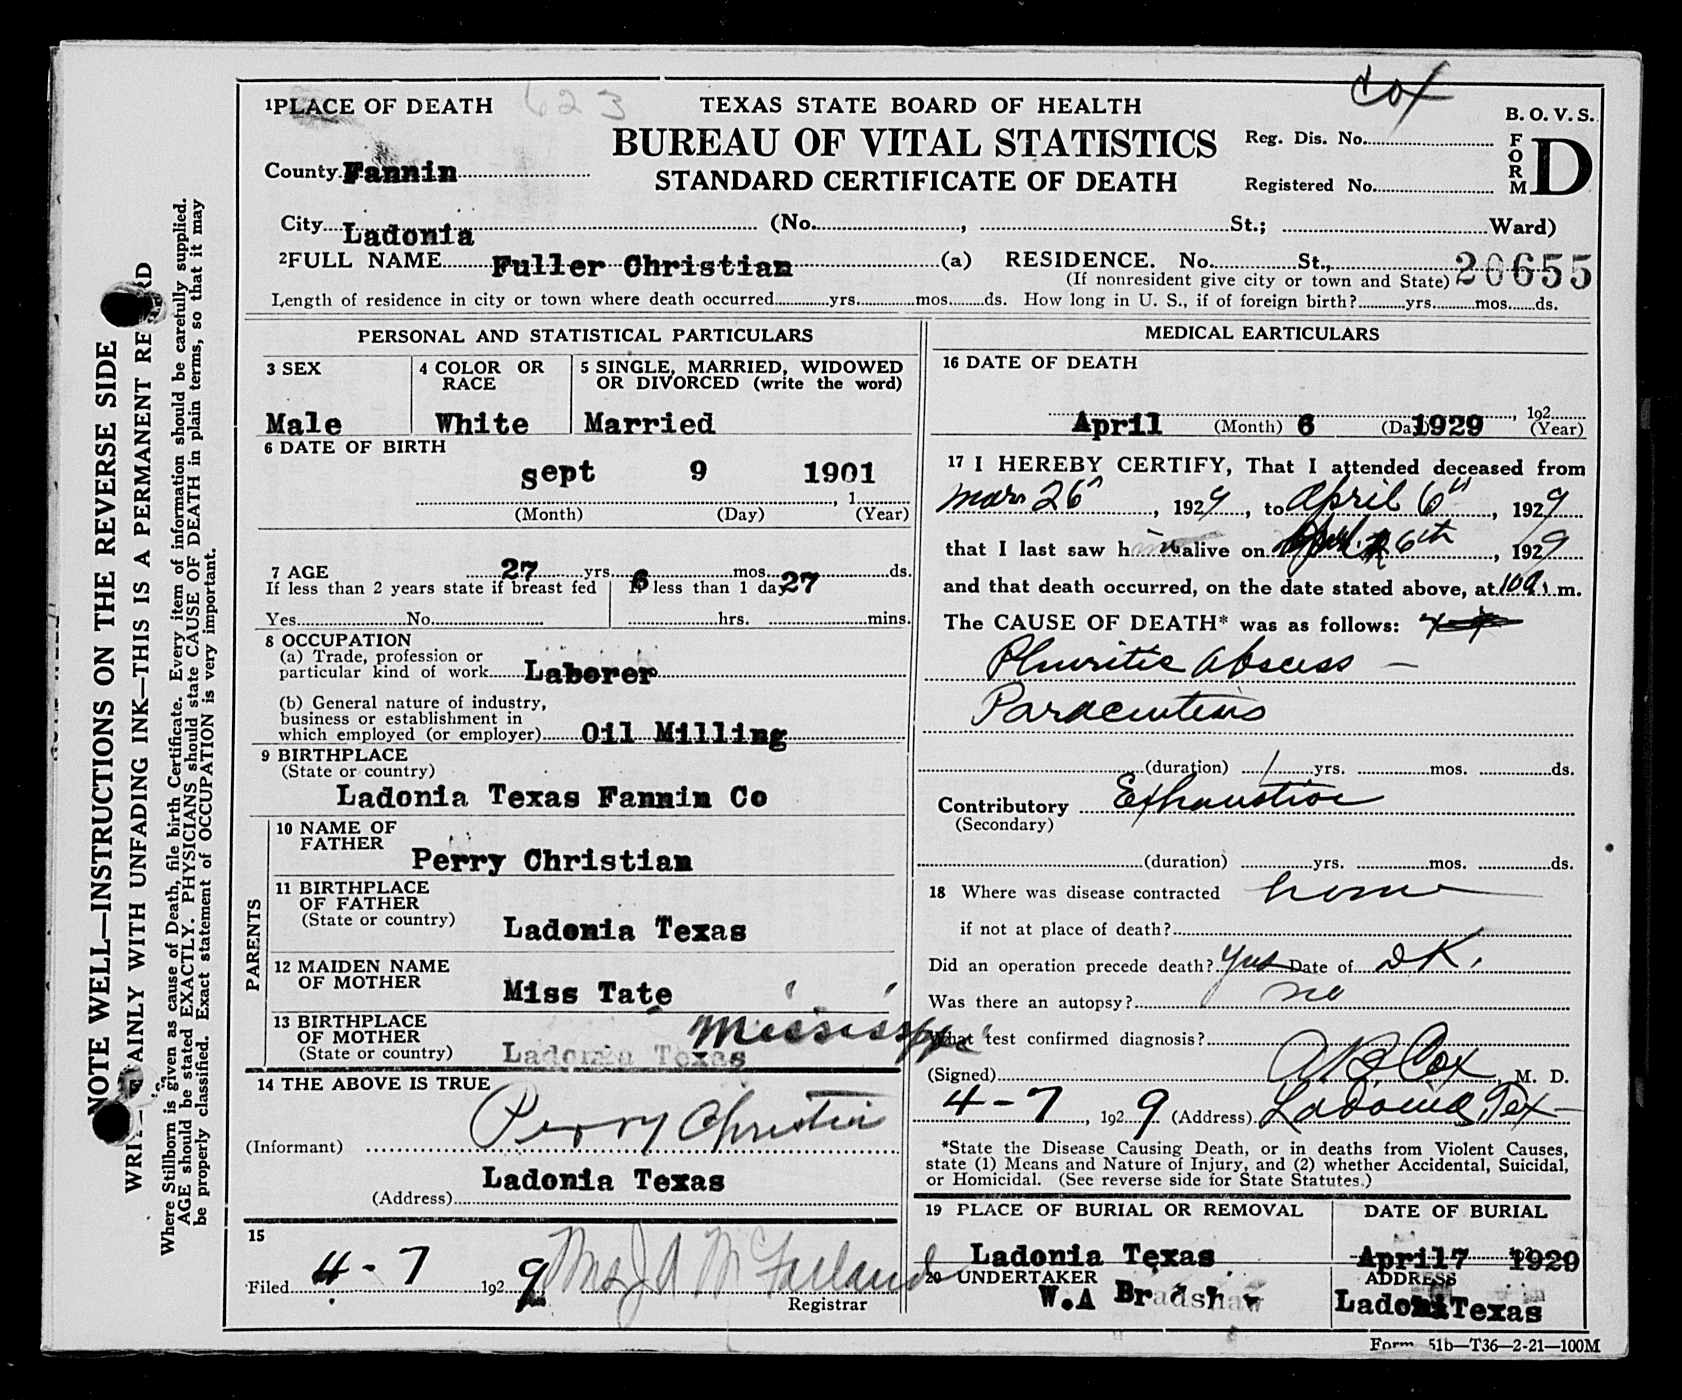 Cox
1PLACE OF DEATH 623
TEXAS STATE BOARD OF HEALTH
B. O. V. S.
BUREAU OF VITAL STATISTICS
Reg. Dis. No.
FORM D
County Fannin
STANDARD CERTIFICATE OF DEATH
Registered No.
City Ladonia (No. , St.; Ward)
2FULL NAME Fuller Christian (a) RESIDENCE. No. St., 20655
(If nonresident give city or town and State)
Length of residence in city or town where death occurred yrs. mos. ds. How long in U. S., if of foreign birth? yrs. mos. ds.
PERSONAL AND STATISTICAL PARTICULARS
3 SEX
Male
4 COLOR OR RACE
White
5 SINGLE, MARRIED, WIDOWED
OR DIVORCED (write the word)
Married
6 DATE OF BIRTH
sept 9 1901
, 1
(Month) (Day) (Year)
7 AGE 27 yrs. 6 mos. 27 ds.
If less than 2 years state if breast fed
Yes No
If less than 1 day
hrs. mins.
8 OCCUPATION
(a) Trade, profession or
particular kind of work Laborer
(b) General nature of industry,
business or establishment in
which employed (or employer) Oil Milling
9 BIRTHPLACE
(State or country)
Ladonia Texas Fannin Co
PARENTS
10 NAME OF
FATHER
Perry Christian
11 BIRTHPLACE
OF FATHER
(State or country)
Ladonia Texas
12 MAIDEN NAME
OF MOTHER
Miss Tate
13 BIRTHPLACE
OF MOTHER
(State or country)
Ladonia Texas
Mississippi
14 THE ABOVE IS TRUE
(Informant) Perry Christian
(Address) Ladonia Texas
15
Filed 4-7 1929 Mrs J A McFarland
Registrar
MEDICAL EARTICULARS
16 DATE OF DEATH
, 192
April (Month) 6 (Da 1929 (Year)
17 I HEREBY CERTIFY, That I attended deceased from
Mar 26", 1929, to April 6", 1929
that I last saw him alive on 6th, 1929
and that death occurred, on the date stated above, at 10 a. m.
The CAUSE OF DEATH* was as follows:
Pluritic Abscess —
Paracentesis
(duration) 1 yrs. mos. ds.
Contributory Exhaustion
(Secondary)
(duration) yrs. mos. ds.
18 Where was disease contracted home
if not at place of death?
Did an operation precede death? Yes Date of DK.
Was there an autopsy? no
What test confirmed diagnosis?
(Signed) Cox, M. D.
4-7, 1929 (Address) Ladonia, Tex
*State the Disease Causing Death, or in deaths from Violent Causes,
state (1) Means and Nature of Injury, and (2) whether Accidental, Suicidal,
or Homicidal. (See reverse side for State Statutes.)
19 PLACE OF BURIAL OR REMOVAL
Ladonia Texas
DATE OF BURIAL
April 7 1929
20 UNDERTAKER
W.A Bradshaw
ADDRESS
Ladonia Texas
Form 51b—T36—2-21—100M
NOTE WELL—INSTRUCTIONS ON THE REVERSE SIDE
WRITE PLAINLY WITH UNFADING INK—THIS IS A PERMANENT RECORD
Where Stillborn is given as cause of Death, file birth Certificate. Every item of information should be carefully supplied.
AGE should be stated EXACTLY. PHYSICIANS should state CAUSE OF DEATH in plain terms, so that it may
be properly classified. Exact statement of OCCUPATION is very important.